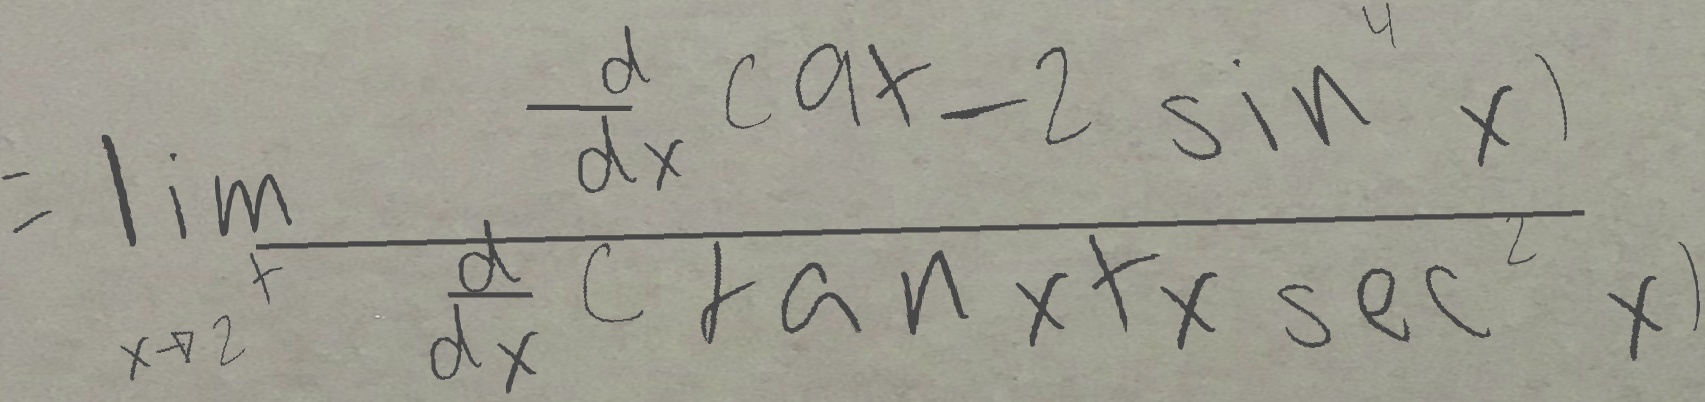 = \lim_{x \to 2^+} \frac{\frac{d}{dx}(9x - 2 \sin^4 x)}{\frac{d}{dx}(\tan x + x \sec^2 x)}